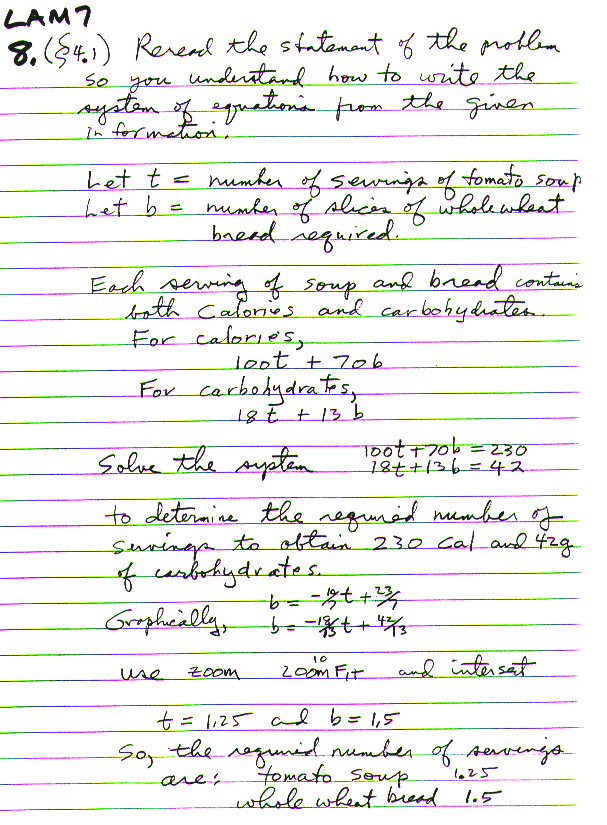 LAM7
8. (§4.1) Reread the statement of the problem
so you understand how to write the
system of equations from the given
information.
Let t = number of servings of tomato soup
Let b = number of slices of whole wheat
bread required.
Each serving of soup and bread contains
both Calories and carbohydrates.
For calories,
100t + 70b
For carbohydrates,
18t + 13b
Solve the system 100t + 70b = 230
18t + 13b = 42
to determine the required number of
servings to obtain 230 Cal and 42g
of carbohydrates.
b = -10/7 t + 23/7
Graphically, b = -18/13 t + 42/13
use zoom zoom 10 Fit and intersect
t = 1.25 and b = 1.5
So, the required number of servings
are: tomato soup 1.25
whole wheat bread 1.5